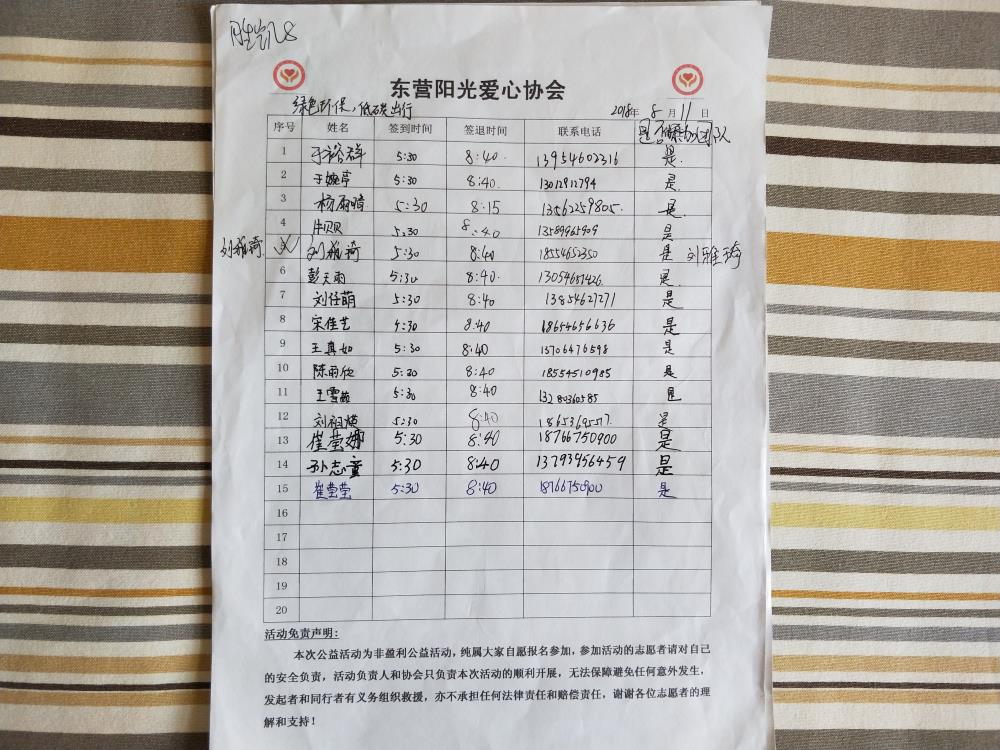 胜凯8
东营阳光爱心协会
绿色环保,低碳出行 2018年 8 月 11 日
序号 姓名 签到时间 签退时间 联系电话 是否 团队
1 于裕群 5:30 8:40. 13954602316 是.
2 于婉亭 5:30 8:40. 13012912794 是.
3 杨雨晴 5:30 8:15 13562259805. 是.
4 牛贝贝 5:30 8:40 13589965909 是
刘雅琦 刘雅琦 5:30 8:40 18554652350 是 刘雅琦
6 彭天雨 5:30 8:40. 13054657426. 是.
7 刘任萌 5:30 8:40 13854627271 是
8 宋佳艺 5:30 8:40 18654656636 是
9 王真如 5:30 8:40 15706476598 是
10 陈雨欣 5:30 8:40 18554510985 是
11 王雪茹 5:30 8:40 13280360585 是
12 刘祖媖 5:30 8:40 是
13 崔莹娜 5:30 8:40 18766750900 是
14 孙志童 5:30 8:40 13793956459 是
15 崔莹莹 5:30 8:40 18766750900 是
16
17
18
19
20
活动免责声明:
本次公益活动为非盈利公益活动,纯属大家自愿报名参加,参加活动的志愿者请对自己
的安全负责,活动负责人和协会只负责本次活动的顺利开展,无法保障避免任何意外发生,
发起者和同行者有义务组织救援,亦不承担任何法律责任和赔偿责任,谢谢各位志愿者的理
解和支持!